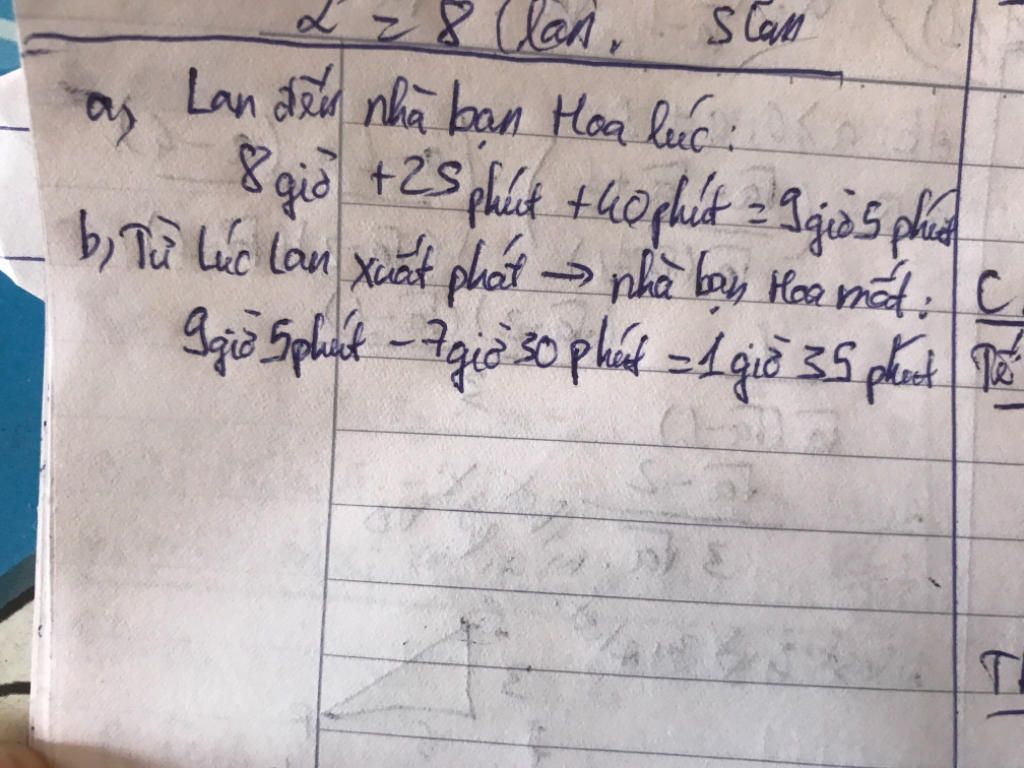 2 = 8 (lan.
a, Lan đến nhà bạn Hoa lúc:
8 giờ + 25 phút + 40 phút = 9 giờ 5 phút
b, Từ lúc Lan xuất phát → nhà bạn Hoa mất:
9 giờ 5 phút - 7 giờ 30 phút = 1 giờ 35 phút
C